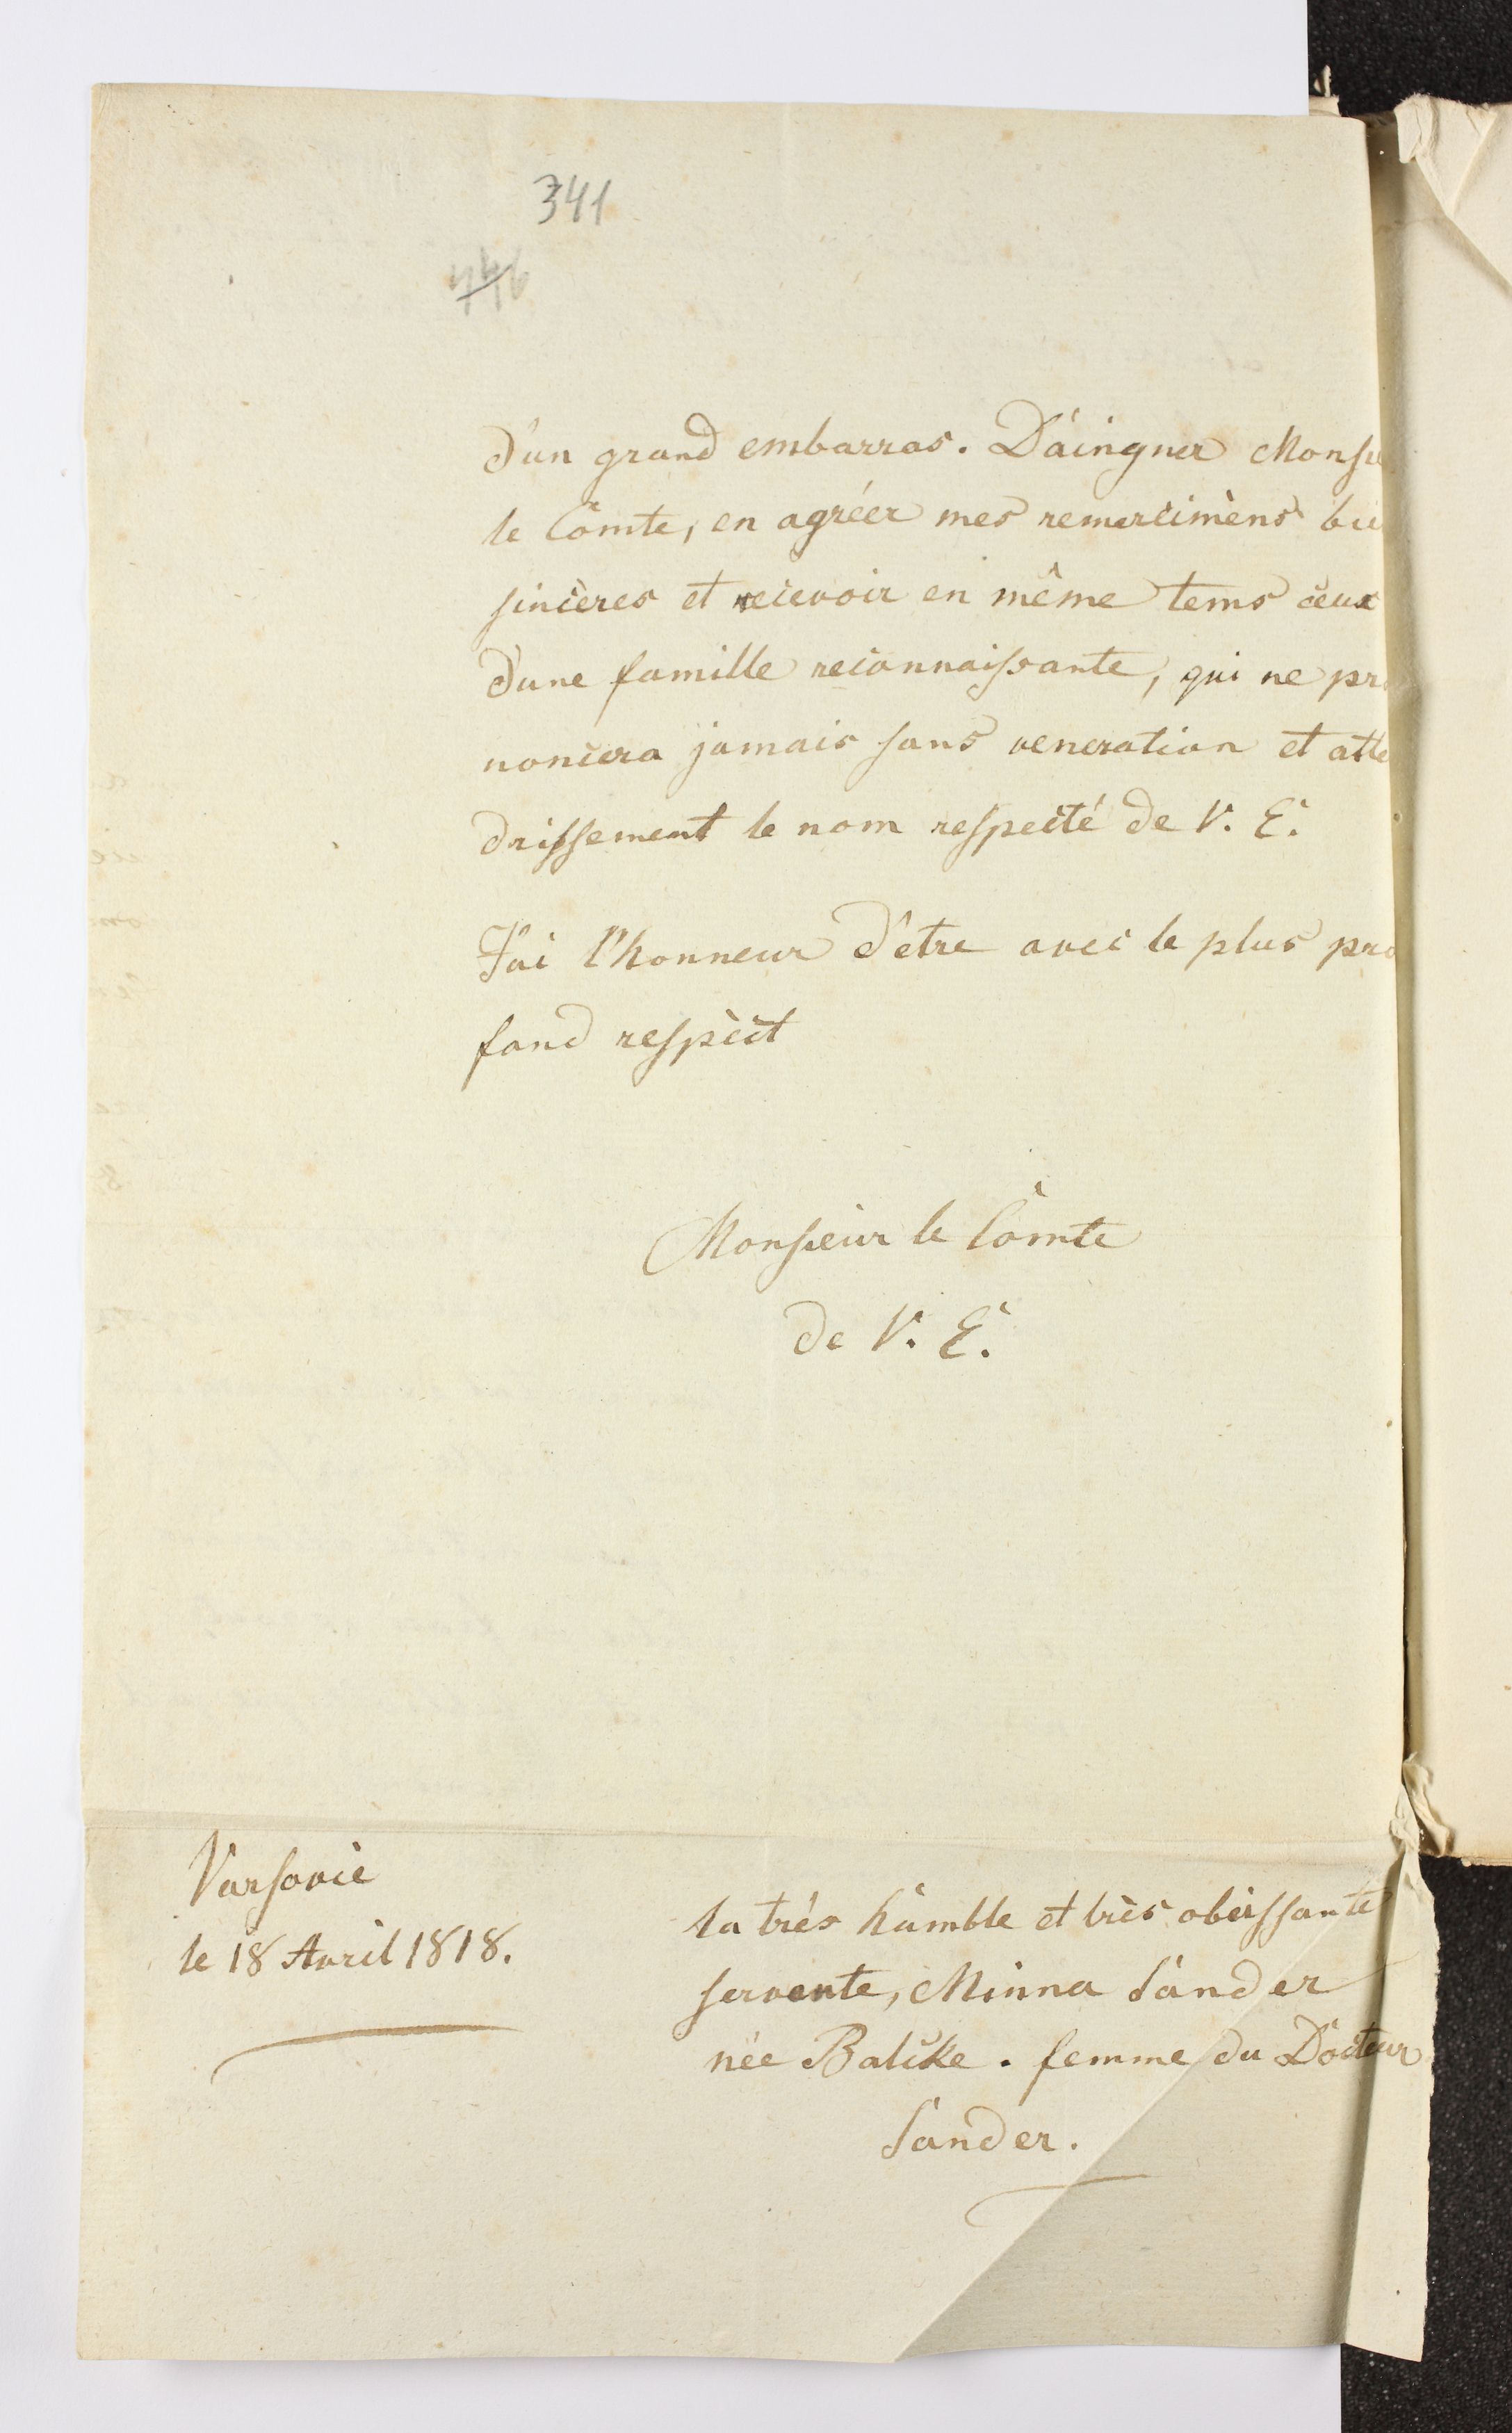 341
d'un grand embarras. Daingner Monsie
le Comte, en agréer mes remercimèns bie
sincères et recevoir en même tems ceux
d'une famille reconnaissante, qui ne pro
noncera jamais sans veneration et atte
drissement le nom respecté de V. E.
J'ai l'honneur d'etre avec le plus pro
fond respèct
Monsieur le Comte
de V. E.
Varsovie
le 18 Avril 1818.
la trés humble et très obeissante
servente, Minna Sander
née Balcke. femme du Docteur
Sander.